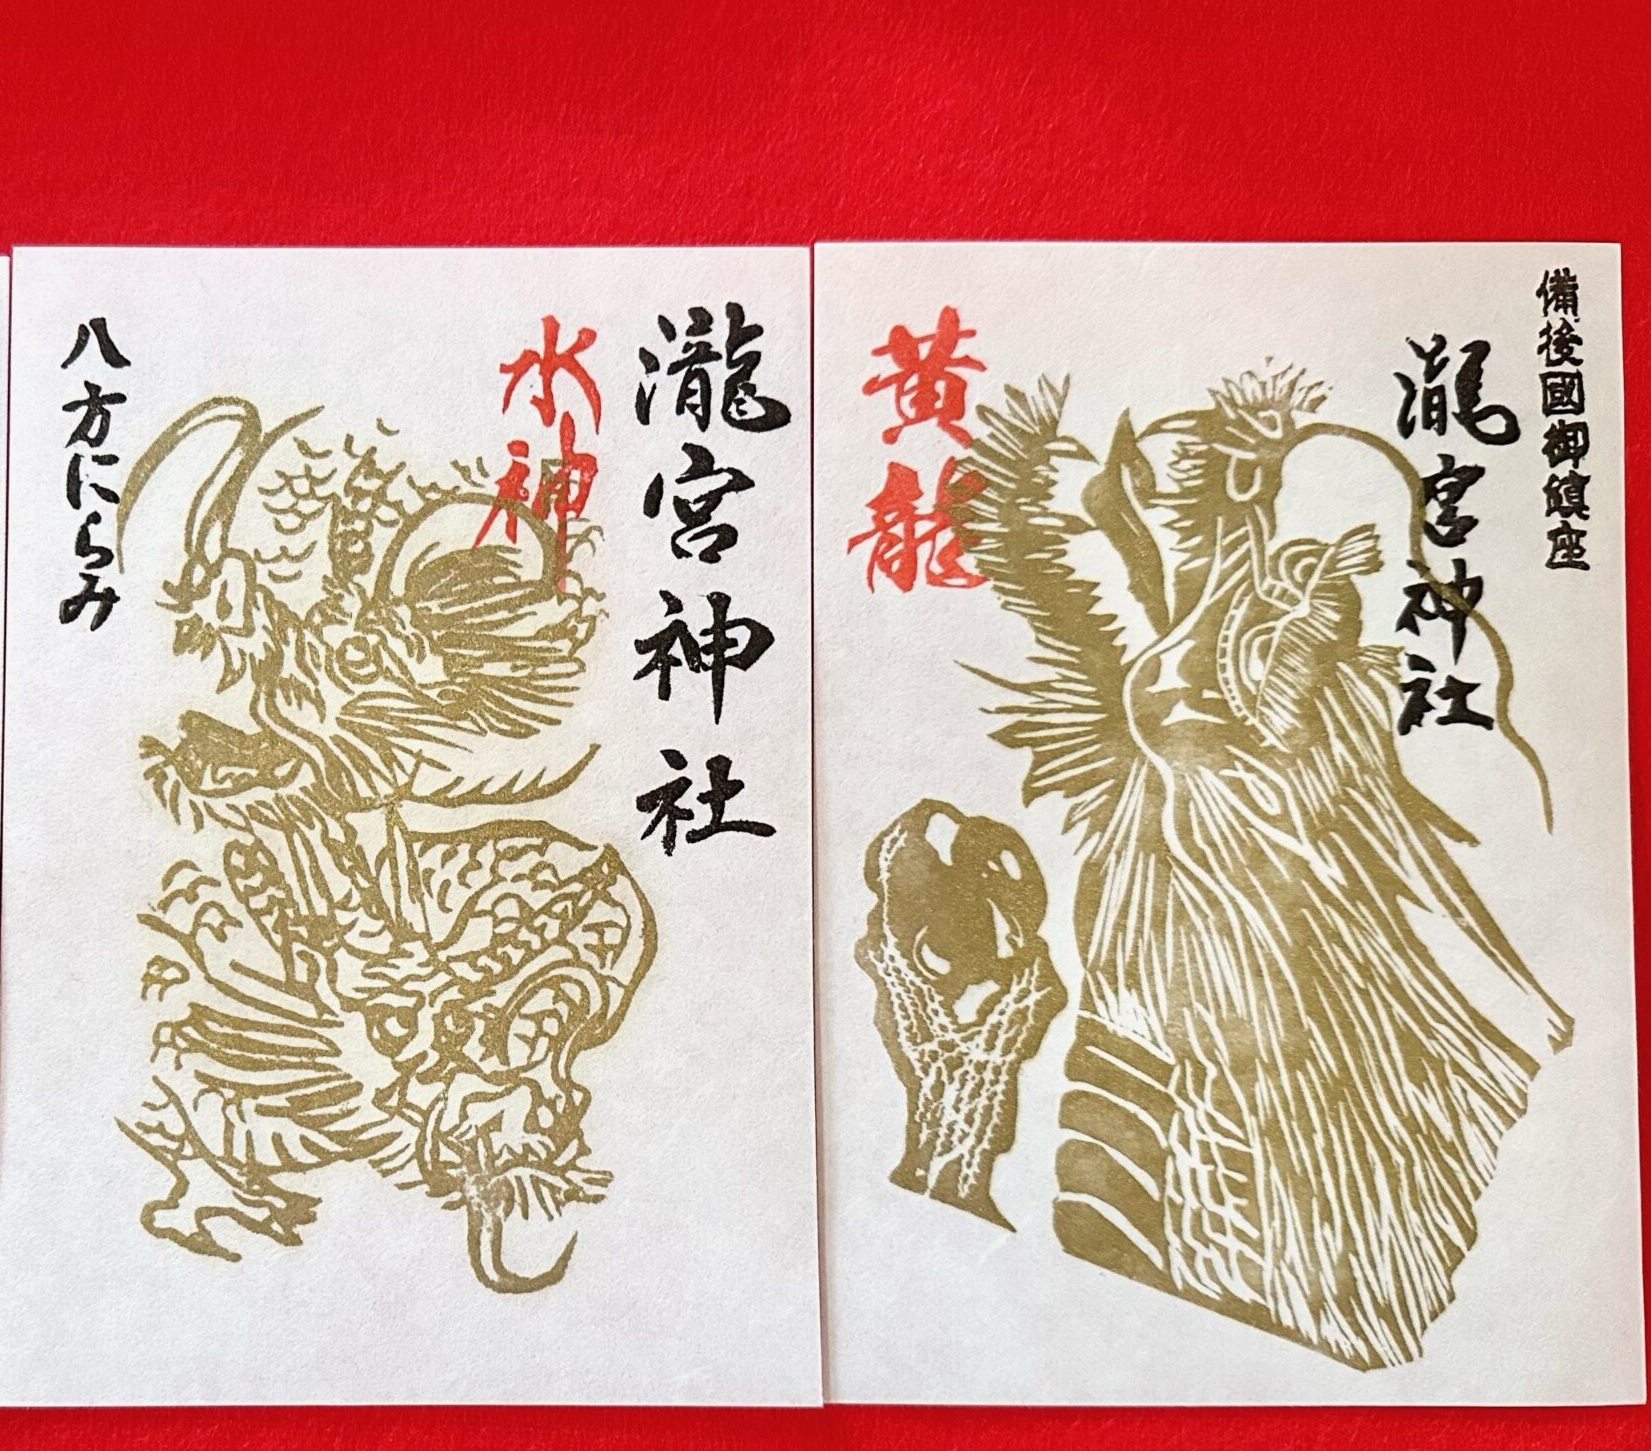 備後國御鎮座
瀧宮神社
黄龍
瀧宮神社
水神
八方にらみ